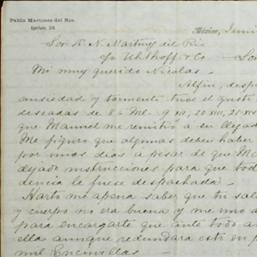 Pablo Martinez del Rio.
México, Juni
Sor. D. N. Martinez del Rio
c/o Uhthoff & Co.
Mi muy querido Nicolas.
Al fin, desp
ansiedad y tormento tuve el gusto
deseadas de 8 - Ml. 9
que Manuel me remitió a su llegad
Me figuro que algunas deben haber
por unos dias a pesar de que M
dejado instrucciones para que tod
dencia le fuese despachada.
Harto me apena saber que tu sal
y cuerpo no era buena y me uno a
para encargarte que ante todo a
ella aunque redundara esto en p
mil Encinillas.